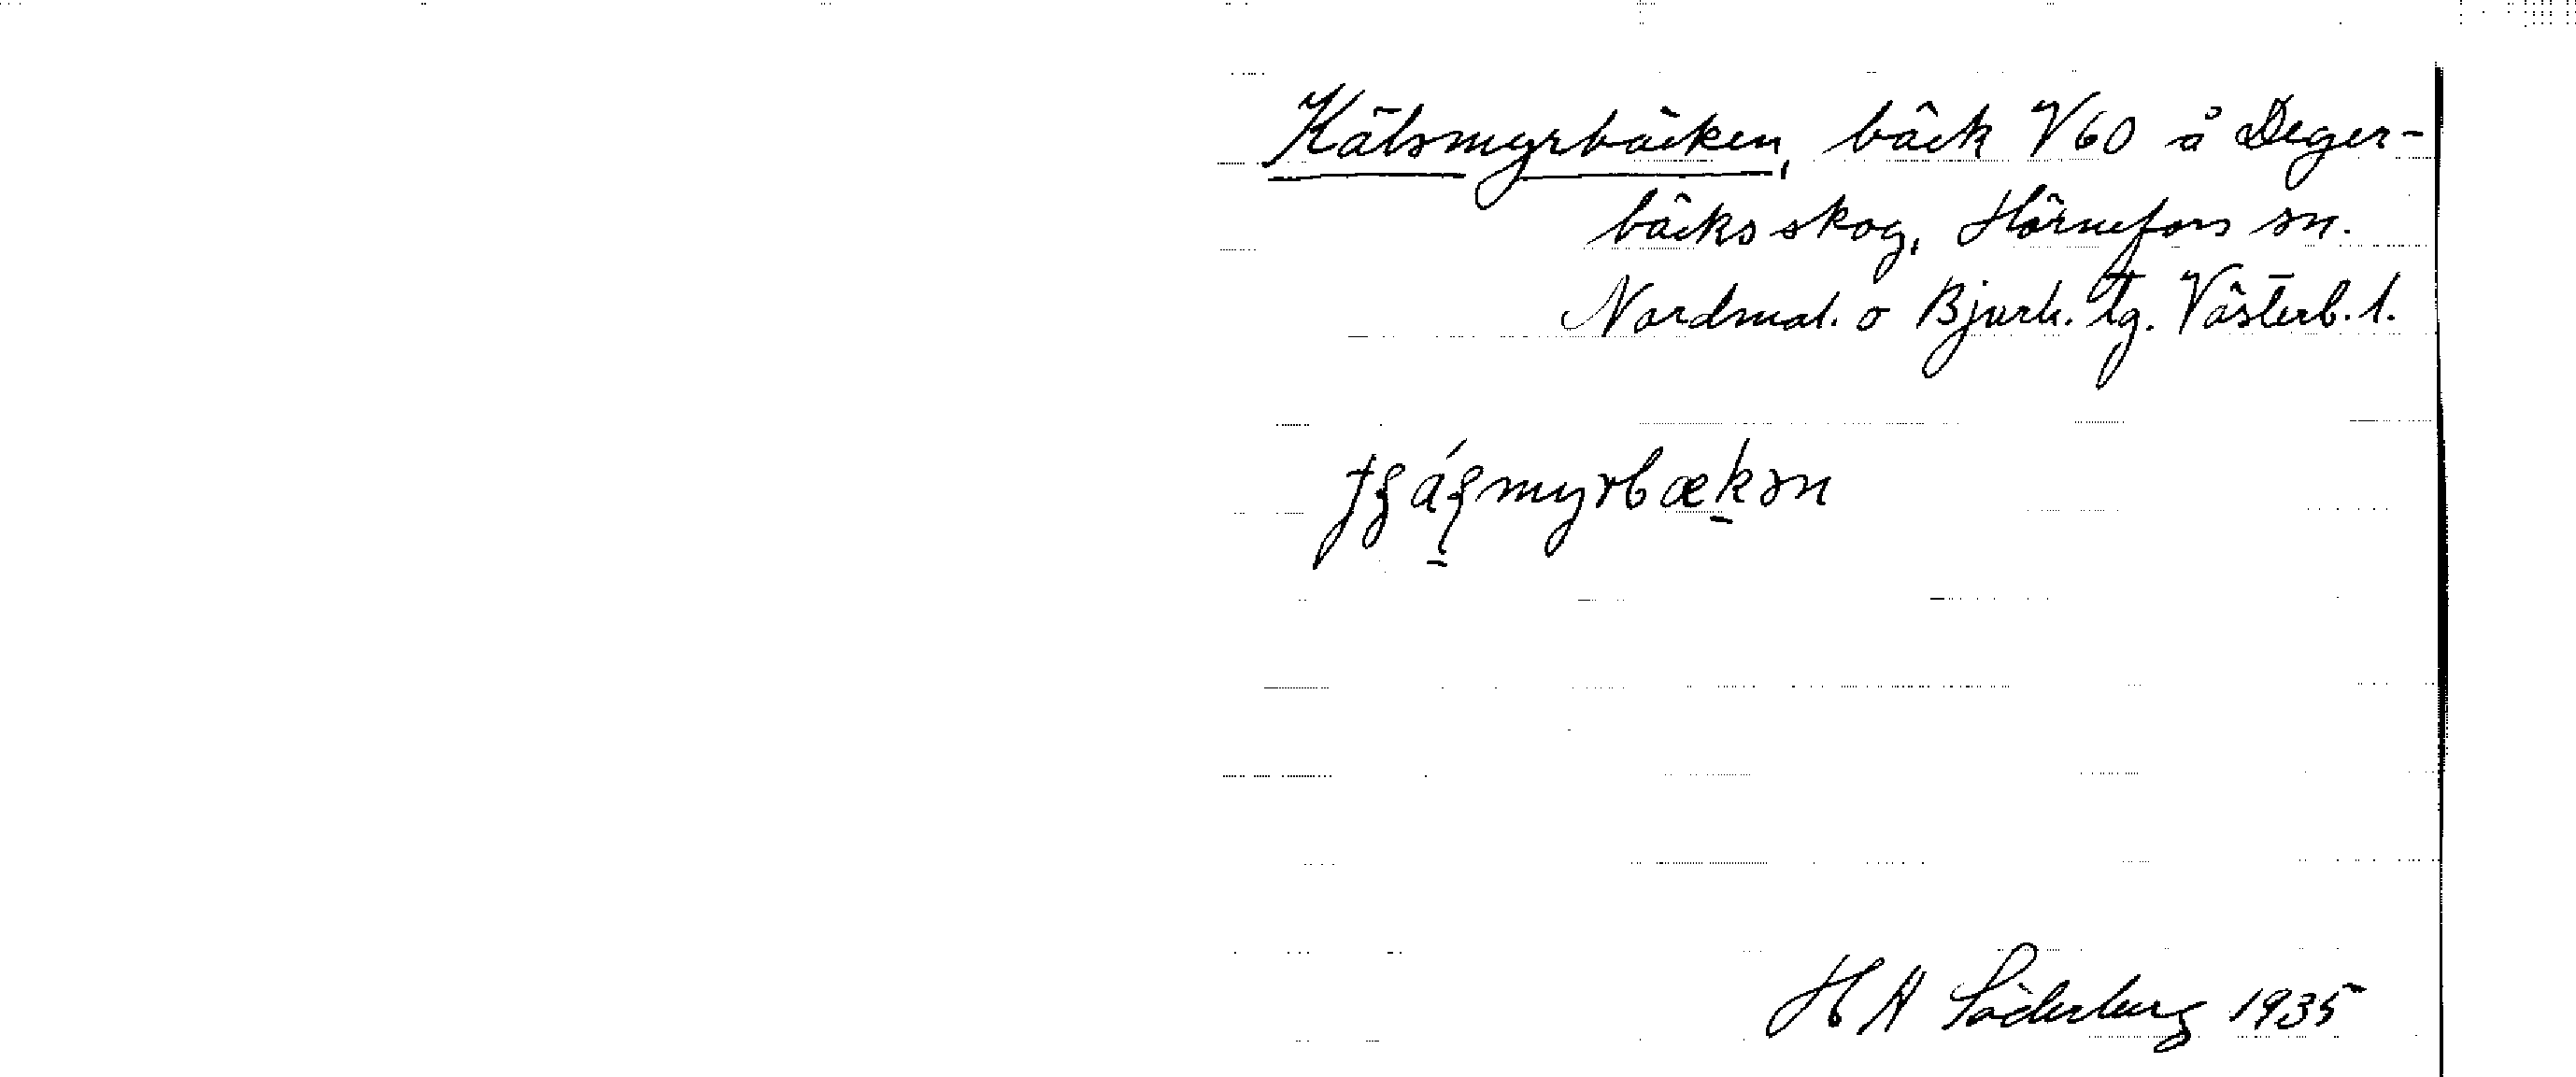 Kälsmyrbäcken, bäck V 60 å Deger-
bäcks skog, Hörnefors sn.
Nordmal. o Bjurh. tg. Västerb. l.
H A Söderberg 1935